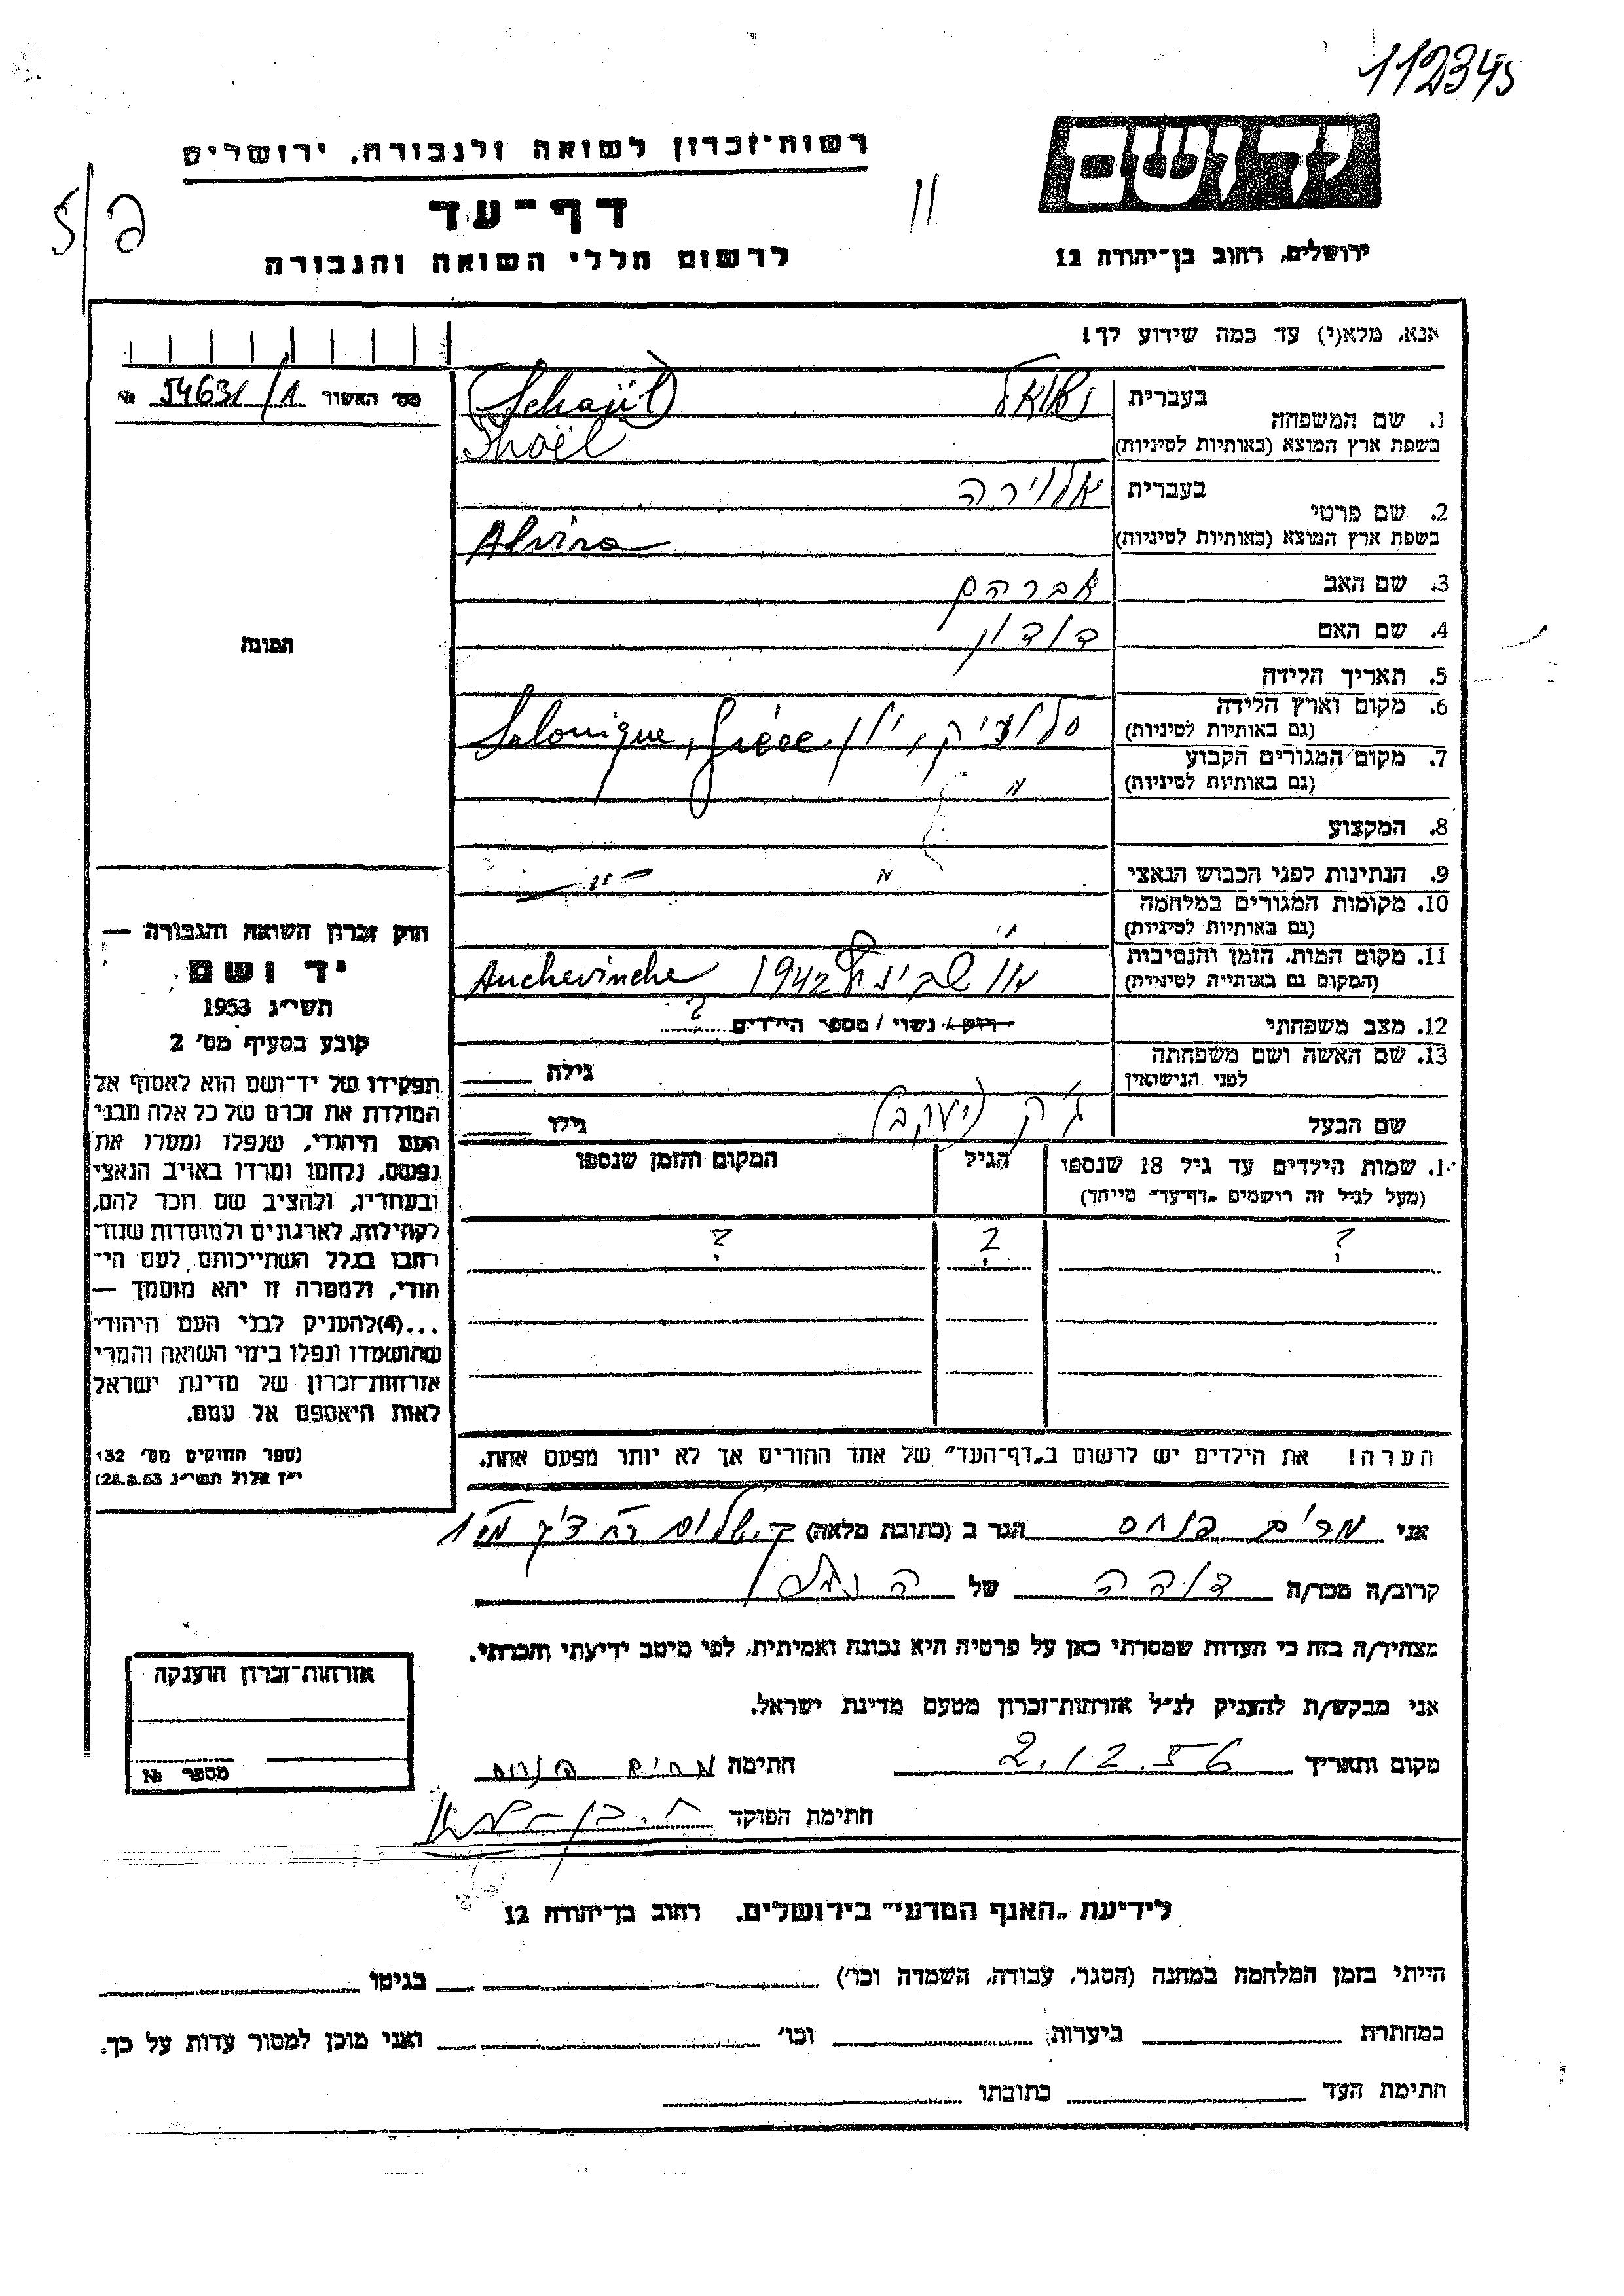 112345
ידושם
רשות־זכרון לשואה ולגבורה, ירושלים
דף־עד
לרשום חללי השואה והגבורה
ירושלים, רחוב בן־יהודה 12
אנא, מלא(י) עד כמה שידוע לך!
מס׳ האשור 54631/1 №
1. שם המשפחה
בעברית שאול
בשפת ארץ המוצא (באותיות לטיניות) (Schaül)
Shaël
2. שם פרטי
בעברית אלוירה
בשפת ארץ המוצא (באותיות לטיניות) Alvira
3. שם האב אברהם
4. שם האם דודון
5. תאריך הלידה
6. מקום וארץ הלידה סלוניק, יון Salonique, Grèce
(גם באותיות לטיניות)
7. מקום המגורים הקבוע "
(גם באותיות לטיניות)
8. המקצוע
9. הנתינות לפני הכבוש הנאצי "
10. מקומות המגורים במלחמה "
(גם באותיות לטיניות)
11. מקום המות, הזמן והנסיבות 1942 Auchevinche
(המקום גם באותיות לטיניות)
12. מצב משפחתי רוק / נשוי / מספר הילדים ?
13. שם האשה ושם משפחתה
לפני הנישואין
גילה
שם הבעל ג'ק (יעקב) גילו
1. שמות הילדים עד גיל 18 שנספו
(מעל לגיל זה רושמים „דף־עד״ מיוחד)
הגיל
המקום והזמן שנספו
? ? ?
הערה! את הילדים יש לרשום ב„דף־העד״ של אחד ההורים אך לא יותר מפעם אחת.
תמונה
חוק זכרון השואה והגבורה —
יד ושם
תשי״ג 1953
קובע בסעיף מס׳ 2
תפקידו של יד־ושם הוא לאסוף אל
המולדת את זכרם של כל אלה מבני
העם היהודי, שנפלו ומסרו את
נפשם, נלחמו ומרדו באויב הנאצי
ובעוזריו, ולהציב שם וזכר להם,
לקהילות, לארגונים ולמוסדות שנח־
רבו בגלל השתייכותם לעם הי־
הודי, ולמטרה זו יהא מוסמך —
...(4)להעניק לבני העם היהודי
שהושמדו ונפלו בימי השואה והמרי
אזרחות־זכרון של מדינת ישראל
לאות היאספם אל עמם.
(ספר החוקים מס׳ 132
י״ז אלול תשי״ג 28.8.53)
אני מרים פנחס הגר ב (כתובת מלאה)
קרוב/ה מכר/ה דודה של
מצהיר/ה בזה כי העדות שמסרתי כאן על פרטיה היא נכונה ואמיתית, לפי מיטב ידיעתי והכרתי.
אני מבקש/ת להעניק לנ״ל אזרחות־זכרון מטעם מדינת ישראל.
מקום ותאריך 2.12.56 חתימה מרים פנחס
חתימת הפוקד
אזרחות־זכרון הוענקה
מספר №
לידיעת „האגף המדעי״ בירושלים. רחוב בן־יהודה 12
הייתי בזמן המלחמה במחנה (הסגר, עבודה, השמדה וכו׳) בגיטו
במחתרת ביערות וכו׳ ואני מוכן למסור עדות על כך.
חתימת העד כתובתו